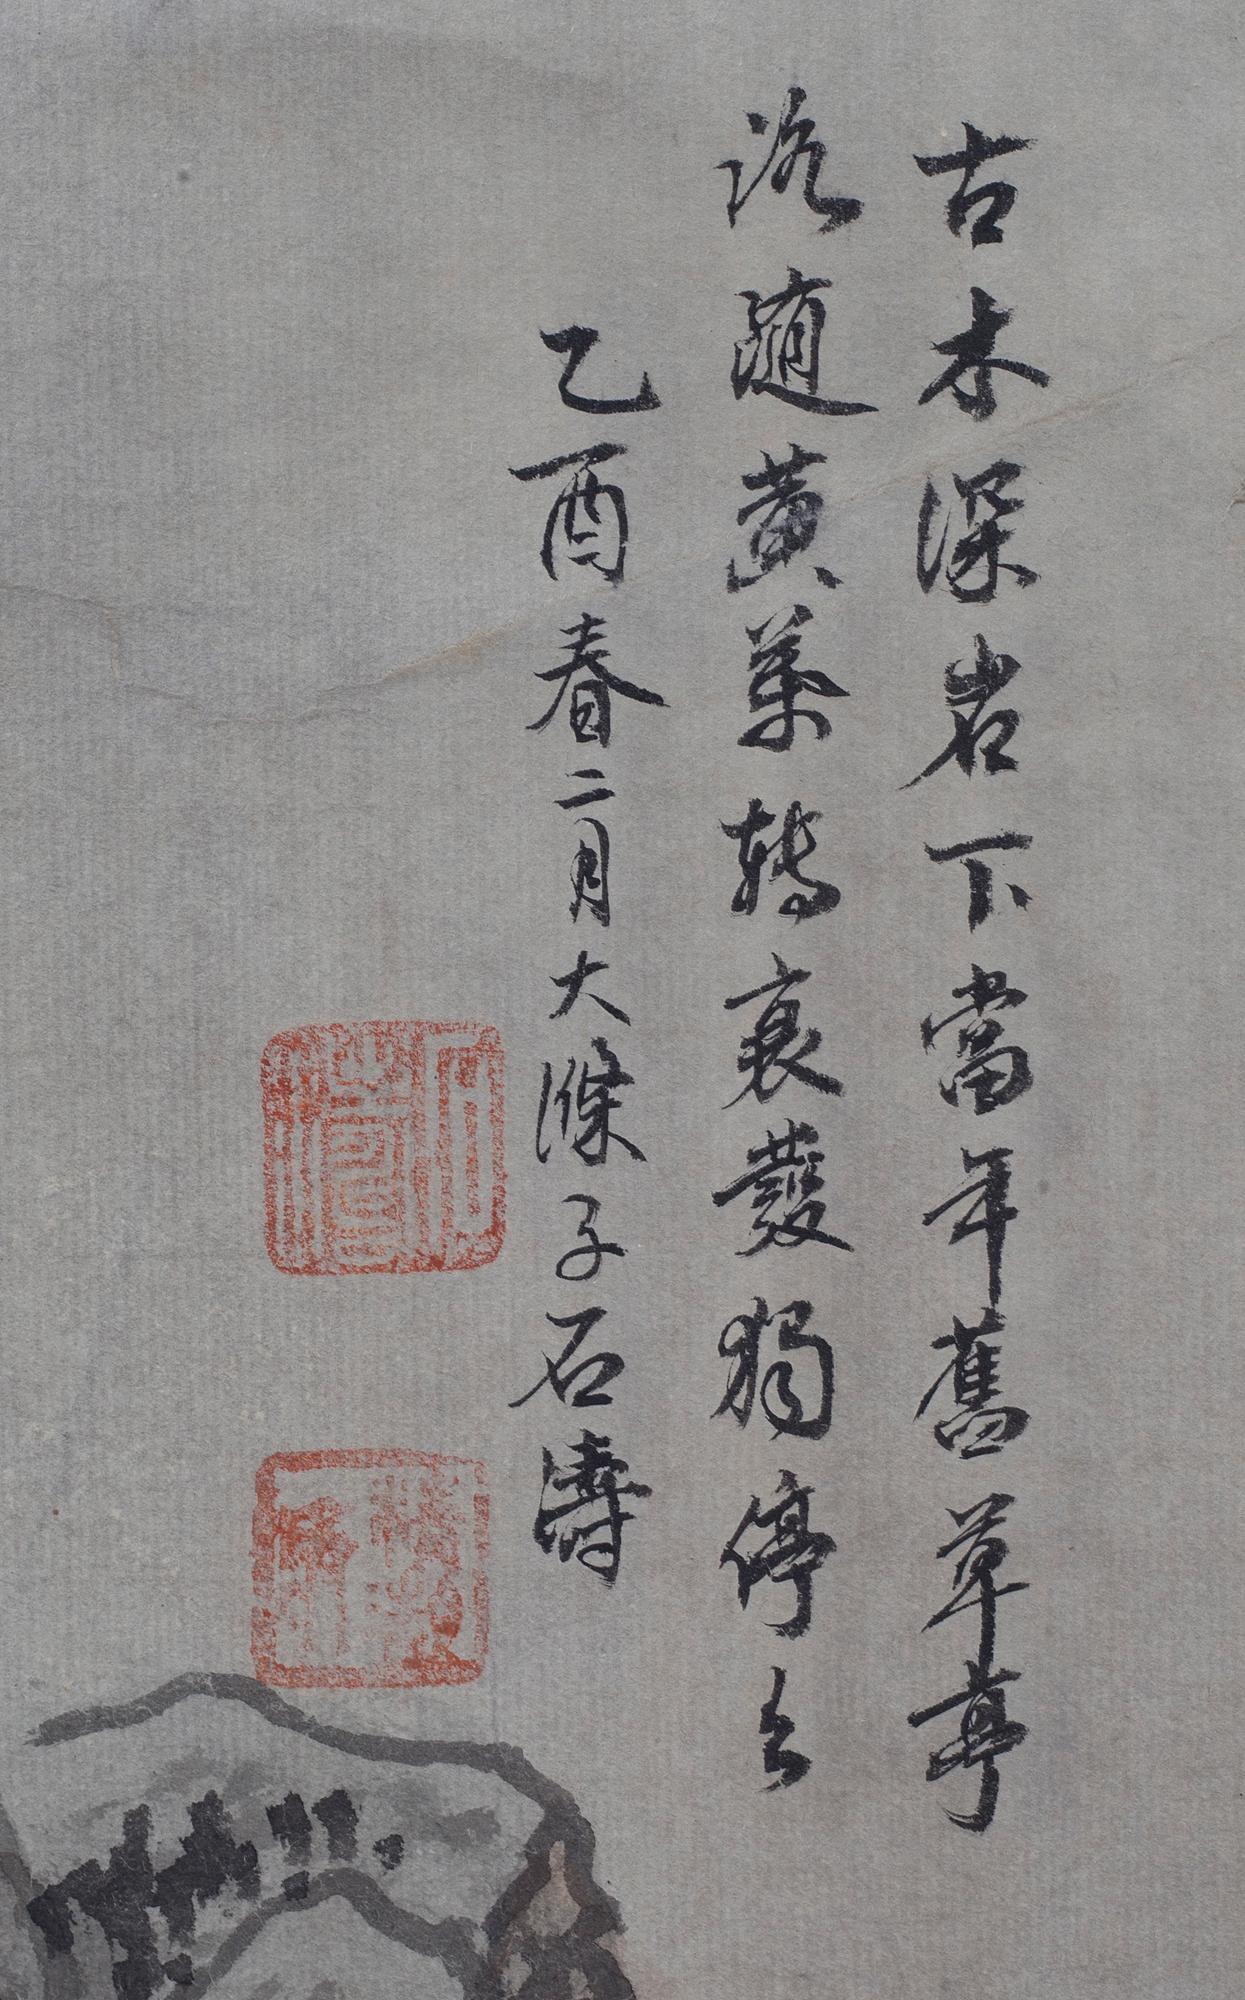 古木深岩下當年舊草亭
路隨黃葉轉衰鬢獨停云
乙酉春二月大滌子石濤